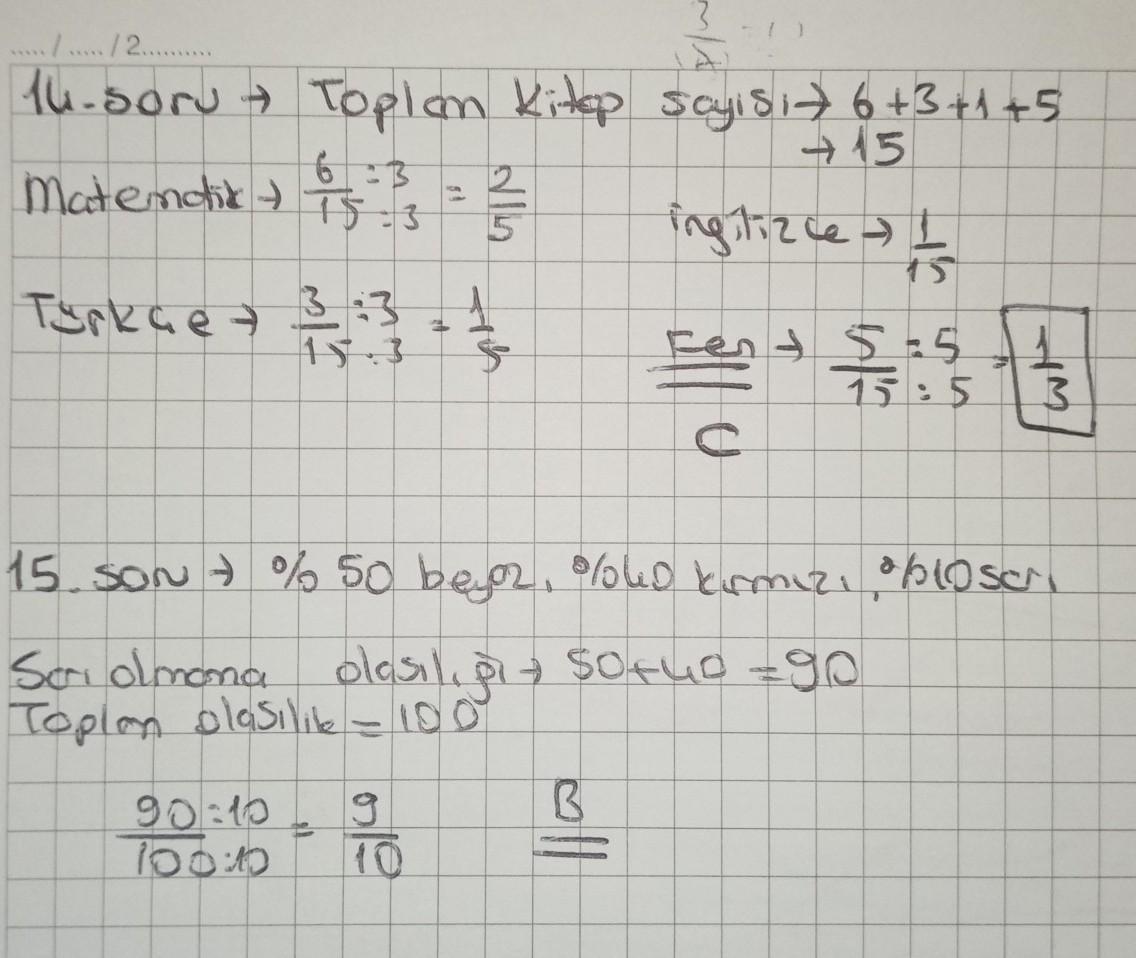 ...../...../2..........
14.soru → Toplam Kitap sayısı → 6+3+1+5
→ 15
Matematik → 6/15 :3/:3 = 2/5
ingilizce → 1/15
Türkçe → 3/15 :3/:3 = 1/5
Fen → 5/15 :5/:5 = 1/3
C
15. soru → %50 beyaz, %40 kırmızı, %10 sarı
Sarı olmama olasılığı → 50+40=90
Toplam olasılık = 100
90:10/100:10 = 9/10
B